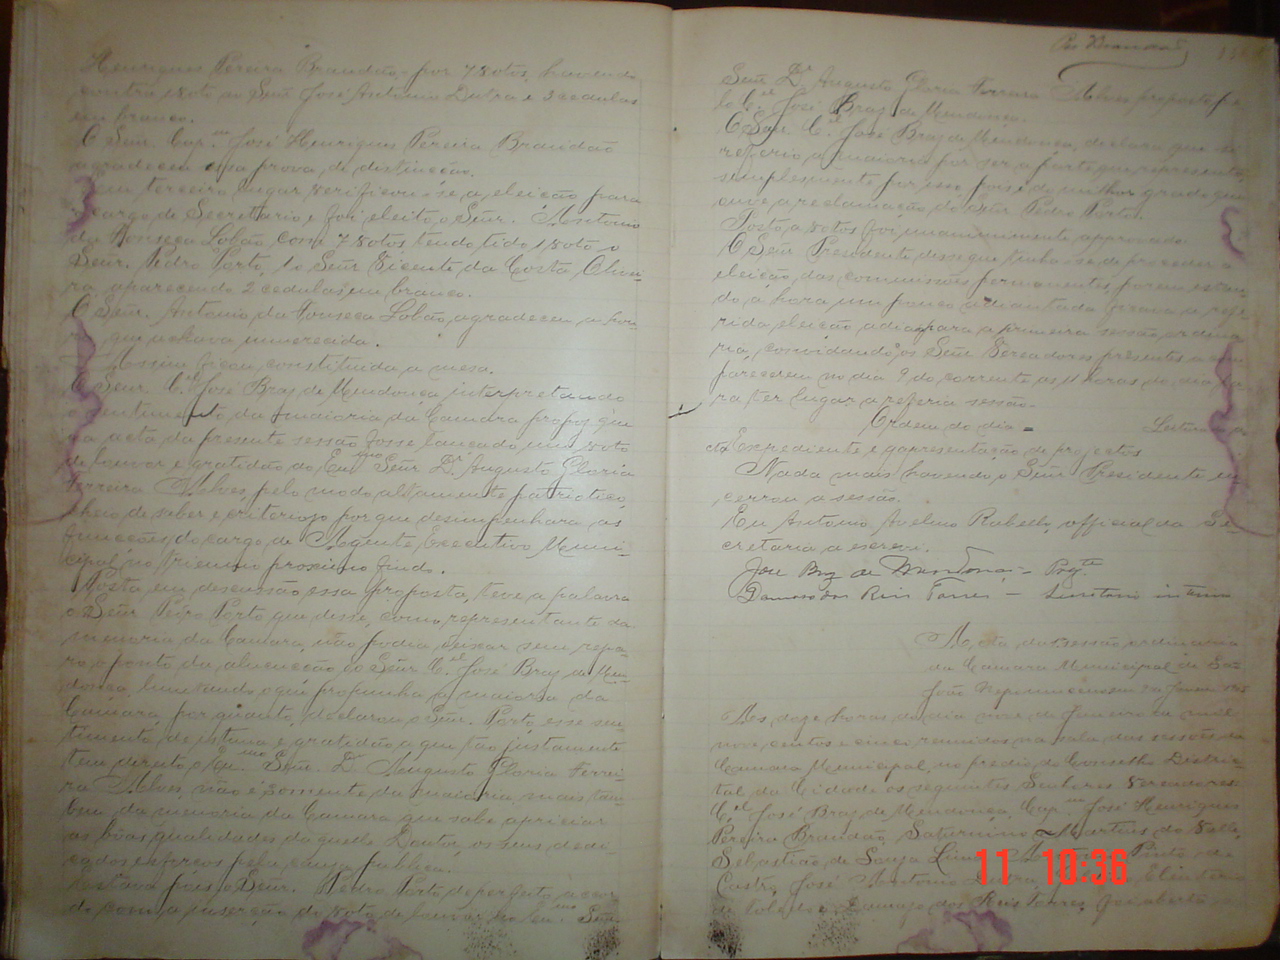 Henriques Pereira Brandão, por 7 votos, havendo
contra 1 voto ao Señr José Antonio Dutra e 3 cedulas
em branco.
O Señr. Cap.m José Henriques Pereira Brandão
agradeceu essa prova de distincção.
Em terceiro lugar verificou-se a eleição para
cargo de Secretario e foi eleito o Señr. Antonio
da Fonseca Lobão com 7 votos tendo tido 1 voto o
Señr. Pedro Porto, 1 o Señr Vicente da Costa Olivei-
ra apparecendo 2 cedulas em branco.
O Señr. Antonio da Fonseca Lobão, agradeceu a hon-
ra que achava immerecida.
Assim ficou constituida a mesa.
O Señr C.el José Braz de Mendonça interpretando
o sentimento da maioria da Camara propoz que
na acta da presente sessão fosse lançado um voto
de louvor e gratidão ao Exmo Señr Dr Augusto Gloria
Ferreira Alves, pelo modo altamente patriotico,
cheio de saber e criterioso por que desempenhara as
funcções do cargo de Agente Executivo Muni-
cipal no triennio proximo findo.
Posta em discussão essa proposta, teve a palavra
o Señr Pedro Porto que disse, como representante da
menoria da Camara, não podia deixar sem repa-
ro, o ponto da alluzão do Señr C.el José Braz de Men-
donça, que propunha a maioria da
Camara, por quanto, declarou o Señr. Porto, esse sen-
timento de estima e gratidão a que tão justamente
tem direito o Exmo Señr. Dr Augusto Gloria Ferrei-
ra Alves, não é somente da maioria, mais tam-
bem da menoria da Camara que sabe apreciar
as bôas qualidades daquelle Doutor, os seus dedi-
cados esforços pela causa publica.
Estava pois o Señr. Pedro Porto de perfeito accor-
do com a inserção do voto de louvor ao Exmo Señr
Señr Dr Augusto Gloria Ferreira Alves proposto pe-
lo C.el José Braz de Mendonça.
O Señr C.el José Braz de Mendonça, declara que se
referio a maioria por ser a parte que representa,
simplesmente por isso pois é do milhor grado que
ouve a reclamação do Señr Pedro Porto.
Posto a votos foi unanimimente approvado.
O Señr Presidente disse que tinha-se de proceder a
eleição das commissões permanentes porem estan-
do a hora um pouco adiantada ficava a refe-
rida eleição adiada para a primeira sessão ordina-
ria, convidando os Señr Vereadores presentes a com-
parecerem no dia 9 do corrente as 11 horas do dia pa-
ra ter lugar a referia sessão.
Ordem do dia = Leitura da
acta Expediente e aprresentação de projectos
Nada mais havendo o Señr Presidente en-
cerrou a sessão.
Eu Antonio Avelino, official da Se-
cretaria a escrevi.
José Braz de Mendonça - Prz.te
Damaso dos Reis Torres - Secretario interino
Acta da 1ª sessão ordinaria
da Camara Municipal de São
João Nepomuceno em 9 de Janeiro 1905
As doze horas do dia nove de Janeiro de mil
nove centos e cinco reunidos na sala das sessões da
Camara Municipal, no predio do Conselho Distric-
tal da Cidade os seguintes Senhores Vereadores
C.el José Braz de Mendonça, Cap.m José Henriques
Pereira Brandão, Saturnino Martins do Valle,
Sebastião de Souza Lima, Pinto de
Castro, José Antonio Dutra,
de Toledo e Damazo dos Reis Torres, foi aberta
11 10:36